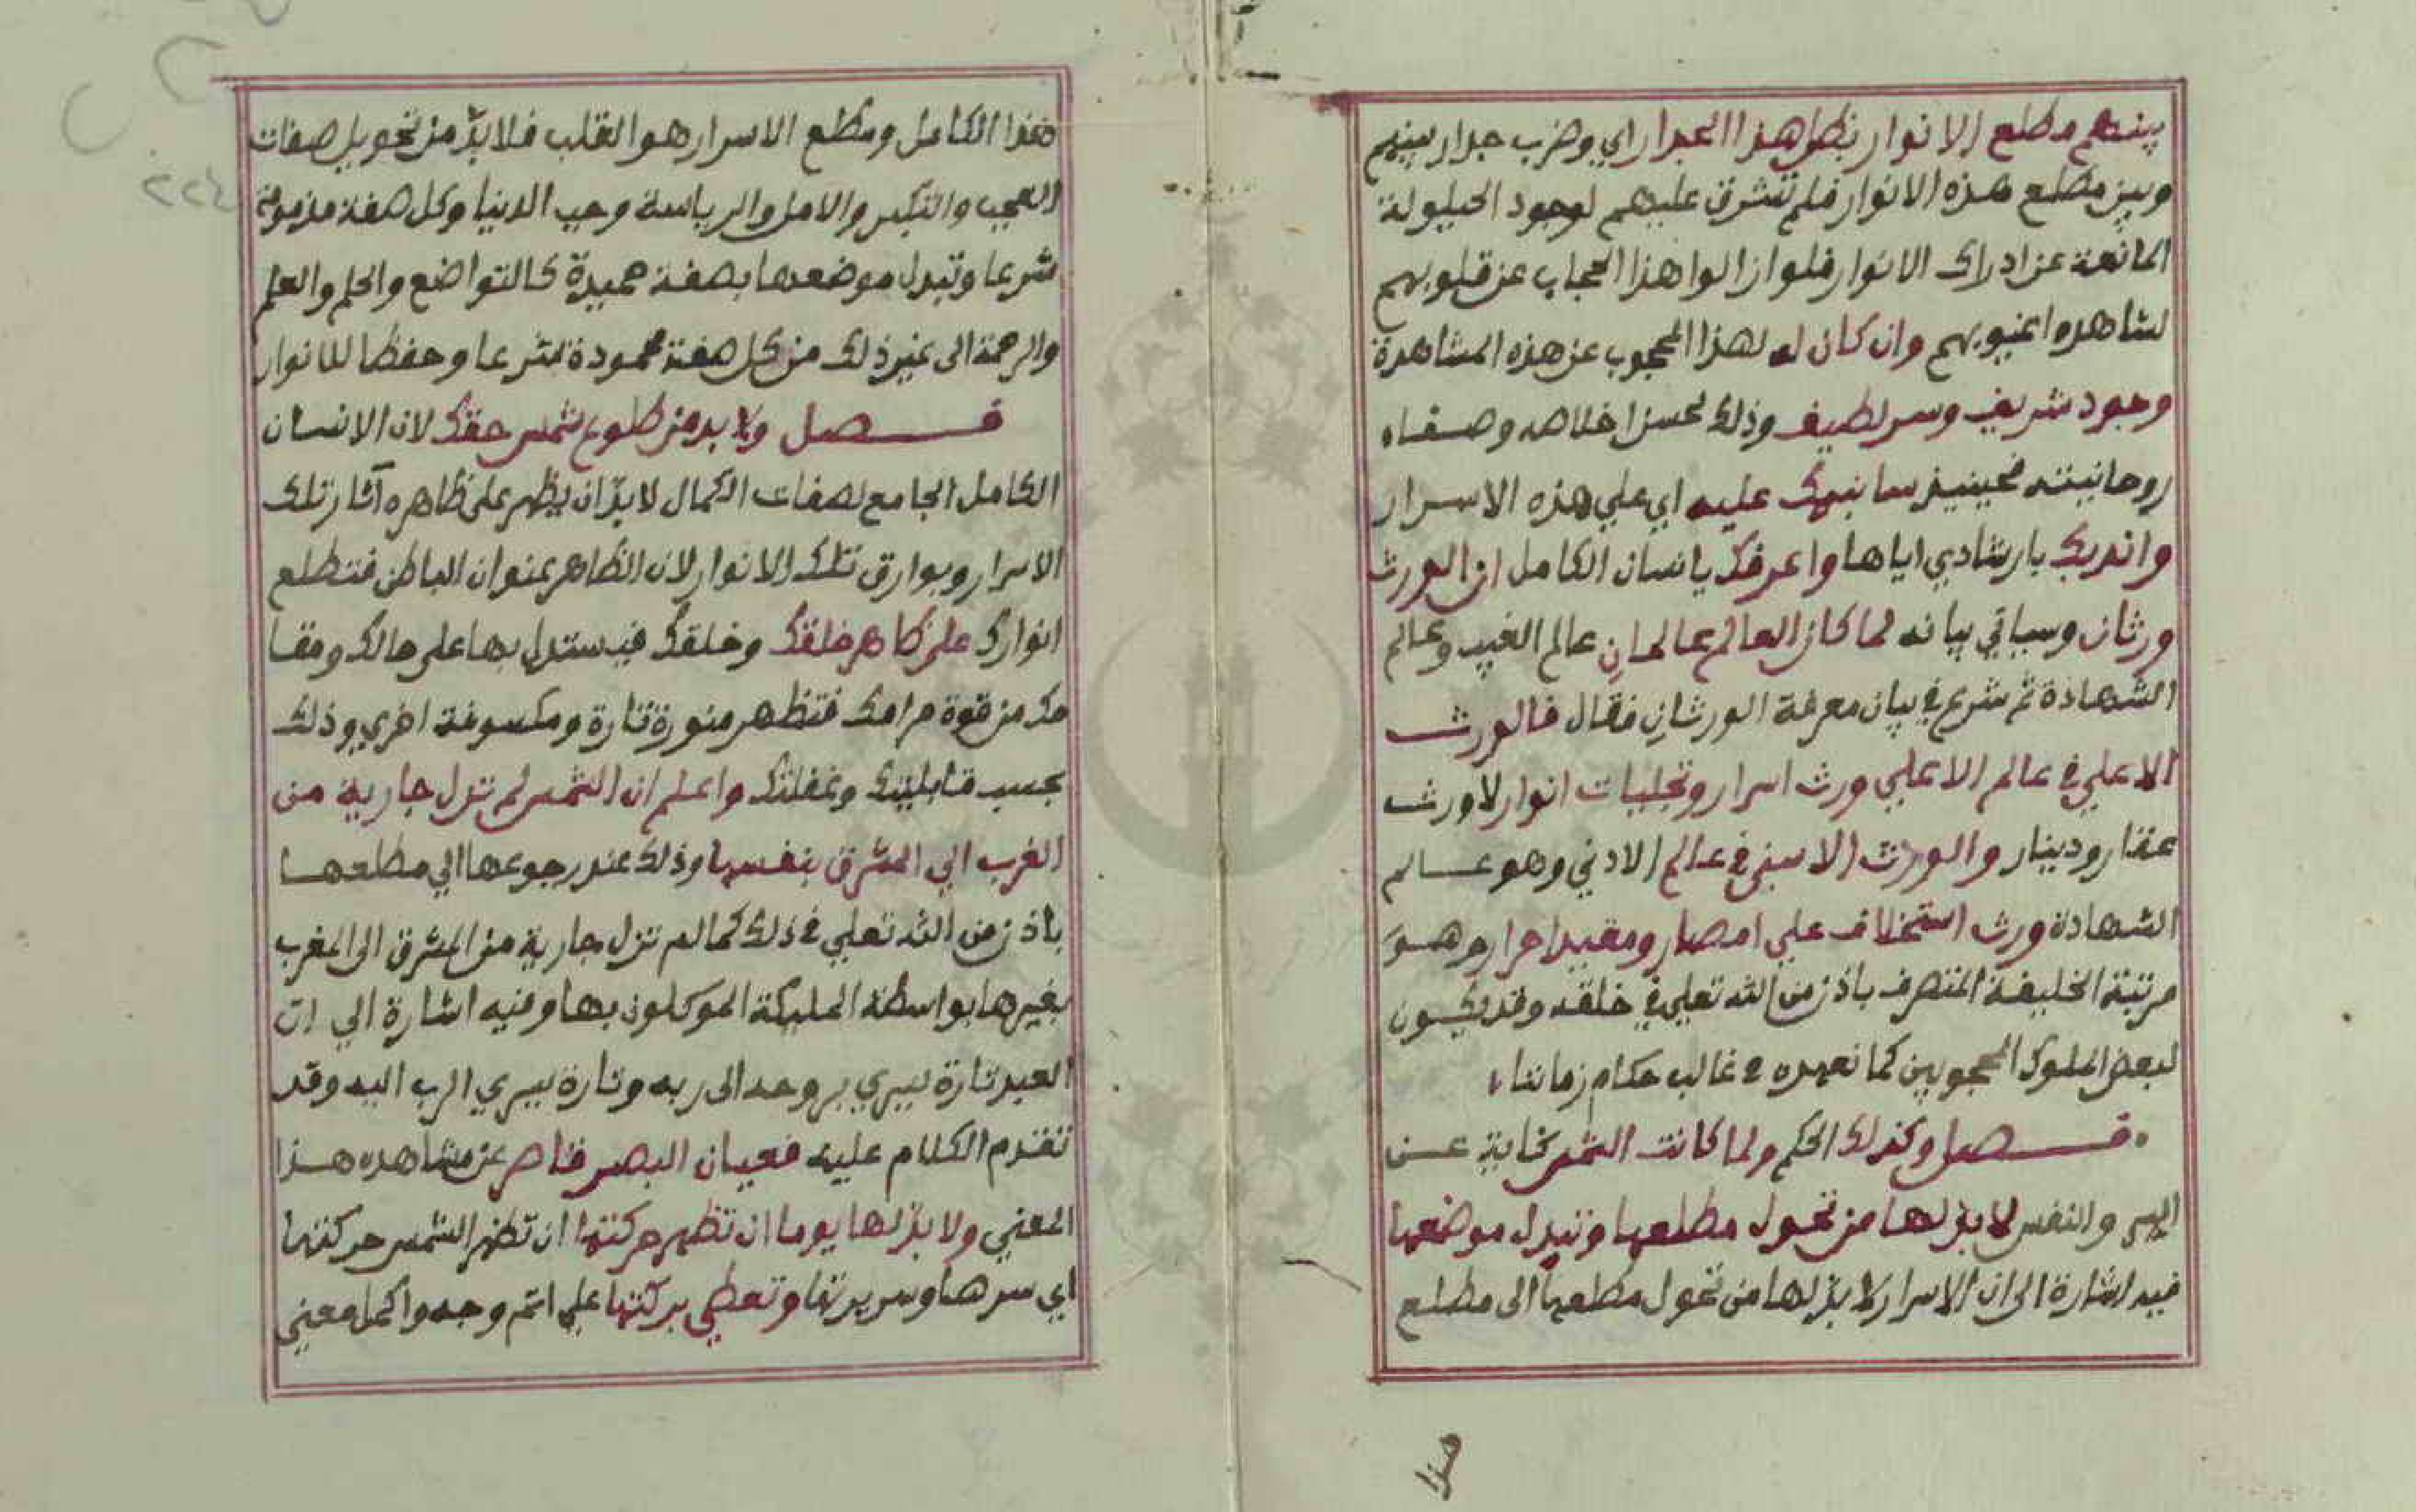 بينهم مطلع الانوار بظل هذا الجدار اي وضرب جدار بينهم
وبين مطلع هذه الانوار فلم تشرق عليهم لوجود الحيلولة
المانعة عن ادراك الانوار فلو ازالوا هذا الحجاب عن قلوبهم
لشاهدوا غيوبهم وان كان له لهذا المحجوب عن هذه المشاهدة
وجود شريف وسر لطيف وذلك لحسن اخلاصه وصفاء
روحانيته فحينيذ سانبهك عليه اي علي هذه الاسرار
واندبك بارشادي اياها واعرفك يا انسان الكامل ان الورث
ورثان وسياتي بيانه لما كان العالم عالمان عالم الغيب وعالم
الشهادة ثم شرع في بيان معرفة الورثان فقال فالورث
الاعلي في عالم الاعلي ورث اسرار وتجليات انوار لا ورث
عقار ودينار والورث الاسنى في عالم الادني وهو عالم
الشهادة ورث استخلاف علي امصار ومقيد احرار وهو
مرتبة الخليفة المتصرف باذن من الله تعلي في خلقه وقد يكون
لبعض الملوك المحجوبين كما نعهده في غالب حكام زماننا
فصل وكذلك الحكم ولما كانت الشمس كناية عن
السر والنفس لا بد لها من تحول مطلعها وتبدل موضعها
فيه اشارة الى ان الاسرار لا بد لها من تحول مطلعها الى مطلع
هذا
٢٢٤
هذا الكامل ومطلع الاسرار هو القلب فلا بد من تحويل صفات
العجب والتكبر والامل والرياسة وحب الدنيا وكل صفة مذمومة
شرعا وتبدل موضعها بصفة حميدة كالتواضع والحلم والعلم
والرحمة الى غير ذلك من كل صفة محمودة شرعا وحفظا للانوار
فصل ولا بد من طلوع شمس حقك لان الانسان
الكامل الجامع لصفات الكمال لا بد ان يظهر على ظاهره آثار تلك
الاسرار وبوارق تلك الانوار لان الظاهر عنوان الباطن فتطلع
انوارك على ظاهر خلقك وخلقك فيستدل بها على حالك ومقا
مك من قوة مرامك فتظهر منورة تارة ومكسوفة اخري وذلك
بحسب قابليتك وغفلتك واعلم ان الشمس لم تزل جارية من
الغرب الي المشرق بنفسها وذلك عند رجوعها الي مطلعها
باذن من الله تعلي في ذلك كما لم تزل جارية من المشرق الى المغرب
بغيرها بواسطة المليكة الموكلون بها وفيه اشارة الي ان
العبد تارة يسري بروحه الى ربه وتارة يسري الرب اليه وقد
تقدم الكلام عليه فعيان البصر قاصر عن مشاهده هذا
المعني ولا بد لها يوما ان تظهر حركتها ان تظهر الشمس حركتها
اي سرها وسريرتها وتعطي بركتها علي اتم وجه واكمل معني